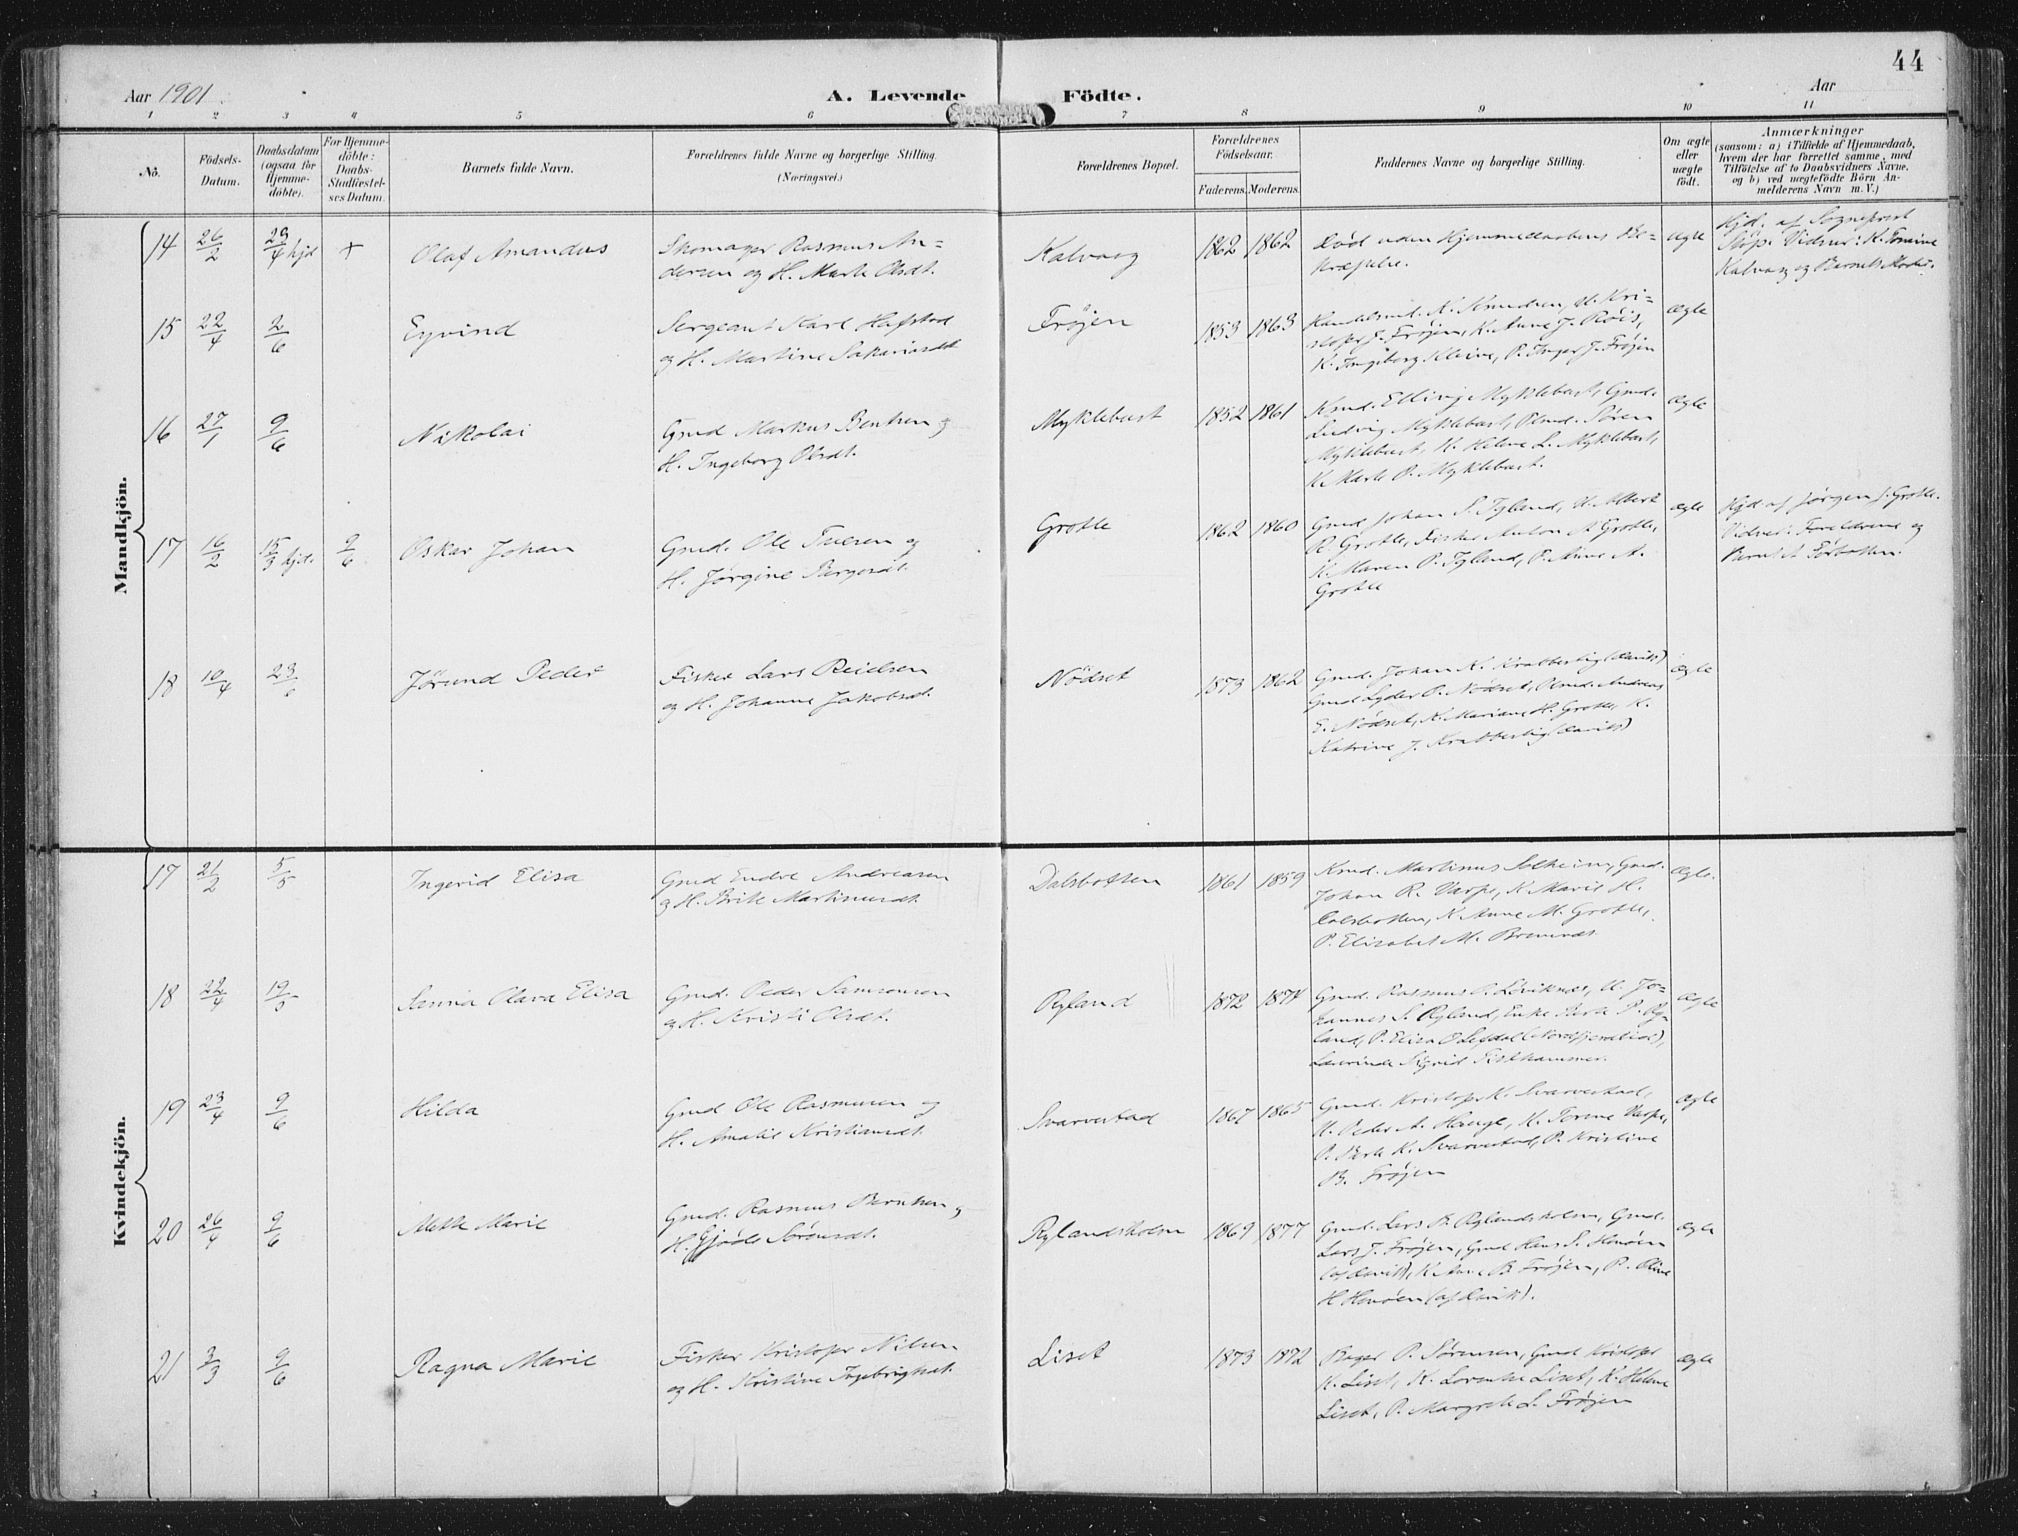 44
Aar 1901.
A. Levende Födte.
Aar
1 2 3 4 5 6 7 8 9 10 11
No.
Födsels-Datum.
Daabsdatum (ogsaa for Hjemmedöbte).
For Hjemmedöbte: Daabs-Stadfæstelses Datum.
Barnets fulde Navn.
Forældrenes fulde Navne og borgerlige Stilling. (Næringsvei.)
Forældrenes Bopæl.
Forældrenes Födselsaar.
Faderens. Moderens.
Faddernes Navne og borgerlige Stilling.
Om ægte eller uægte födt.
Anmærkninger
(saasom: a) i Tilfælde af Hjemmedaab, hvem der har forrettet samme, med Tilföielse af to Daabsvidners Navne, og b) ved uægtefödte Börn Anmelderens Navn m. V.)
Mandkjön.
14 26/2 29/4 hjd + Olaf Amandus
Skomager Rasmus An-
dersen og H. Marte Olsdt.
Kalvaag 1862 1862
Død uden Hjemmedaabens Be-
kræftelse.
ægte
Hjd. af Sogneprest
Vidner: K.
Kalvaag og Barnets Moder.
15 22/4 2/6 Eyvind
Sergeant Karl Hafstad
og H. Martine Sakariasdt.
Frøjen 1853 1863
Handelsmd. K. Knudsen, U. Kri-
stofer J. Frøjen, K. Anne J.
K. Ingeborg Kleive, P. Inger J. Frøjen
ægte
16 27/1 9/6 Nikolai
Gmd Markus Bentsen og
H. Ingeborg Olsdt.
Myklebust 1852 1861
Elling Myklebust, Gmd.
Ludvig Myklebust, Søren
Myklebust, K. Helene L. Myklebust,
K. Marte P. Myklebust.
ægte
17 16/2 15/3 hjd. 9/6 Oskar Johan
Gmd. Ole Iversen og
H. Jørgine
Grotle 1862 1860
Gmd Johan S. Igland, U. Albert
R. Grotle, Fisker Anton A Grotle,
K. Maren P. Igland, P. Anne A.
Grotle
ægte
Hjd af Jørgen J. Grotle.
Vidner: Foreldrene og
18 10/4 23/6 Jørund Peder
Fisker Lars Reielsen
og H. Johanne Jakobsdt.
Nødset 1873 1862
Gmd. Johan K. Krabbestig (Davik)
Gmd Lyder P. Nødset, Andreas
E. Nødset, K. Mariane H. Grotle, K.
Katrine J. Krabbestig (Davik)
ægte
Kvindekjön.
17 21/2 5/5 Ingerid Elisa
Gmd Endre Andreasen
og H. Brite Martinusdt.
Dalsbotten 1861 1859
Martinus Solheim, Gmd.
Johan R. Varpe, K Marie H.
Dalsbotten, K Anne M. Grotle,
P. Elisabet M.
ægte.
18 22/4 19/5 Olava Elisa
Gmd. Peder Samsonsen
og H. Kristi Olsdt.
Ryland 1872 1874
Gmd. Rasmus P. U. Jo-
hannes S. Ryland, Enke P. Ry-
land, P. Elisa O Lefdal (Nordfjoreid),
Lærerinde Sigrid
ægte
19 23/4 9/6 Hilda
Gmd Ole Rasmusen og
H. Amalie Kristiansdt.
Svarvestad 1867 1865
Gmd. Kristofer K. Svarvestad,
U. Peder A. Hauge, K. Varpe,
P. K. Svarvestad, P. Kristine
B. Frøjen
ægte
20 26/4 9/6 Mette Marie
Gmd. Rasmus Berntsen og
H. Gjøde Sørensdt.
Rylandsholm 1869 1877
Gmd. Lars B. Rylandsholm, Gmd.
Lars J. Frøjen, Gmd Hans S.
(af Davik), K Anne B Frøjen, P. Oline
H (af Davik).
ægte
21 3/3 9/6 Ragna Marie
Fisker Kristofer Nilsen
og H. Kristine Ingebrigtsdt.
Liset 1873 1872
Bager P. Sørensen, Gmd Kristofer
K. Liset, K. Lovenke Liset, K. Helene
Liset, P. Margrete L. Frøjen
ægte